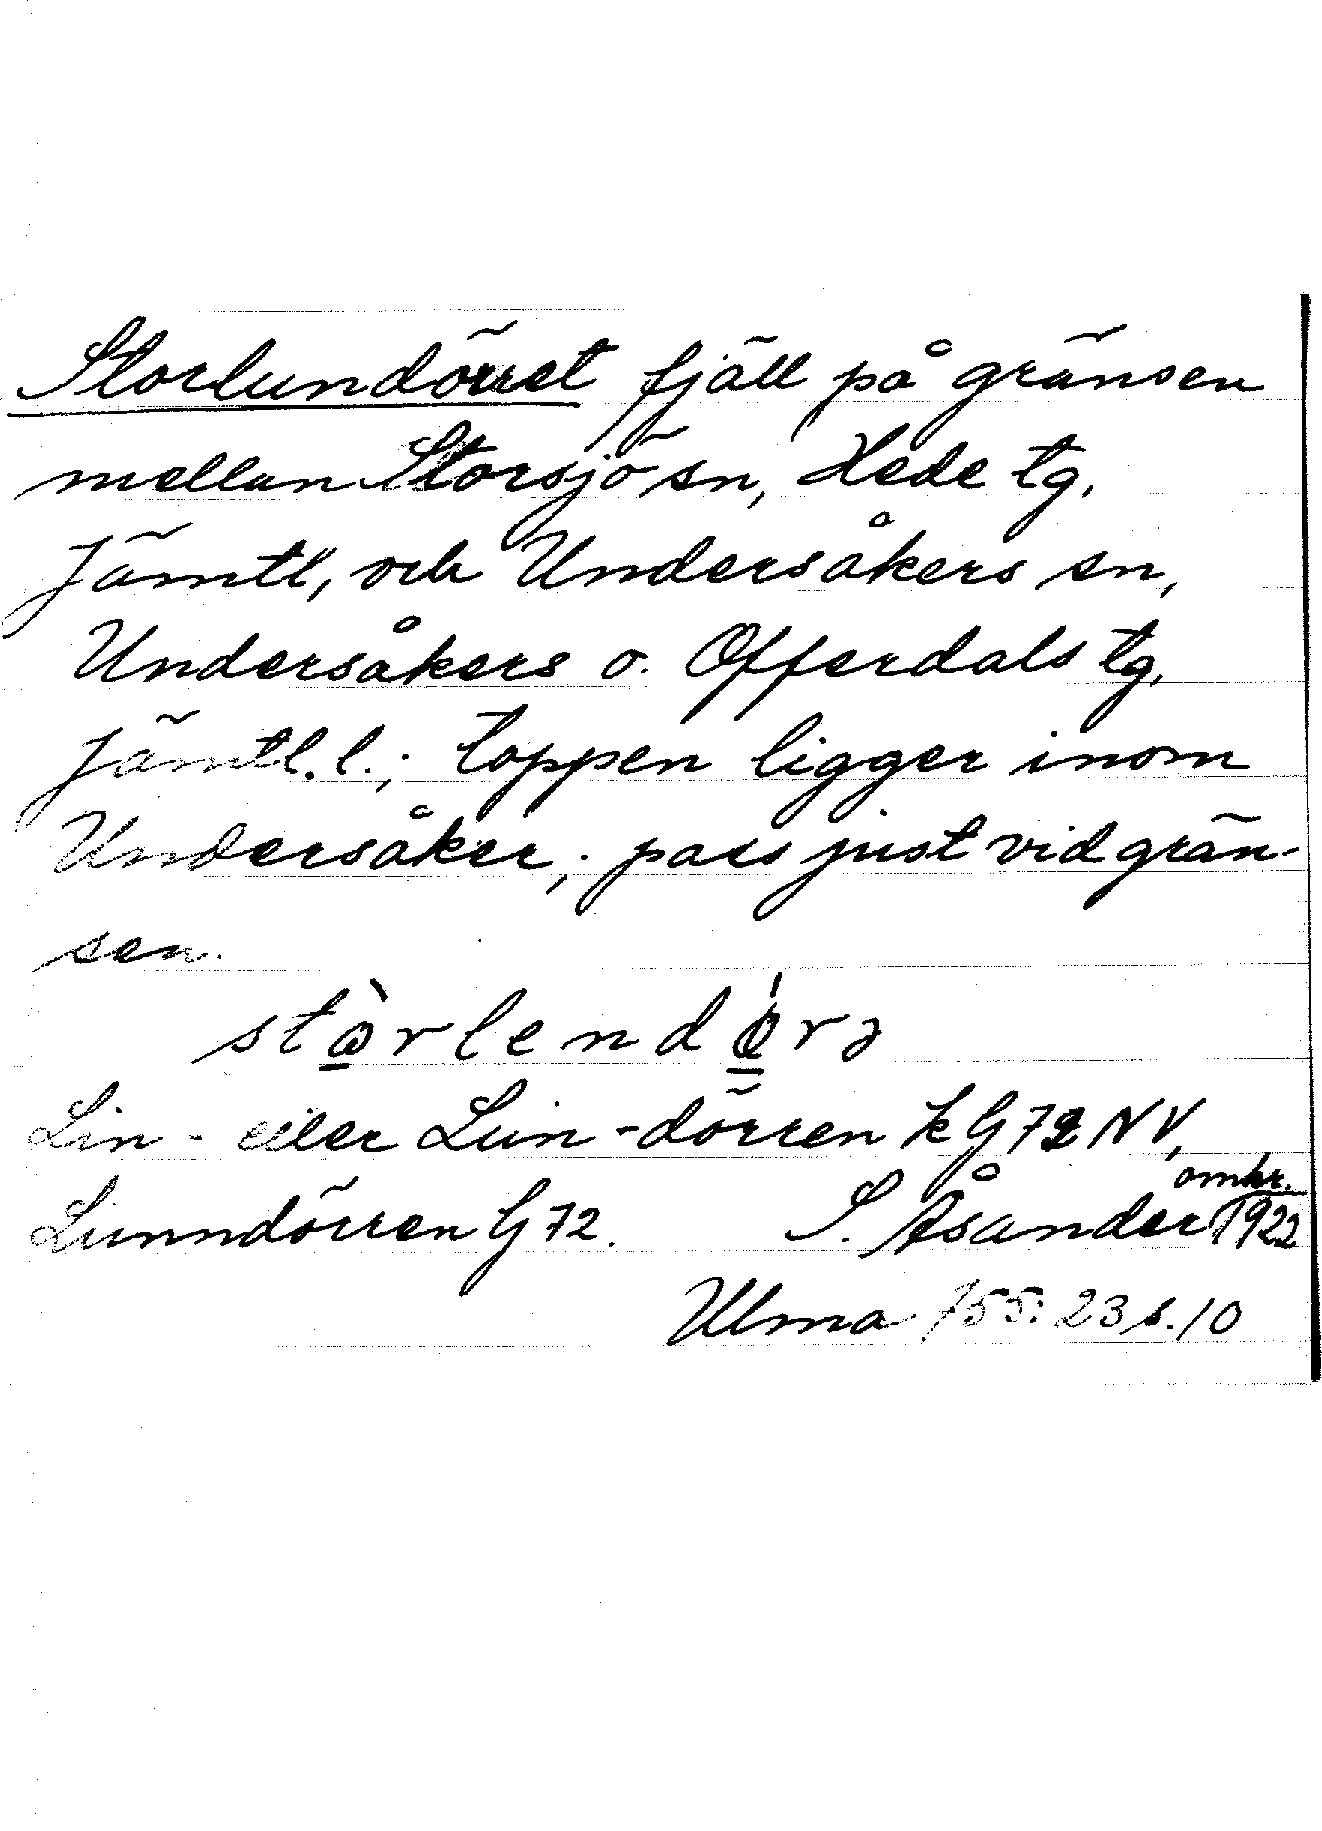 Storlundörret fjäll på gränsen
mellan Storsjö sn, Hede tg,
Jämtl, och Undersåkers sn,
Undersåkers o. Offerdals tg,
Jämtl. l.; toppen ligger inom
Undersåker; pass just vid grän-
sen.
Lin- eller Lun-dörren k G72 NV,
Lunndörren G 72. S. Åsander omkr. 1922
Ulma 155:23 s. 10